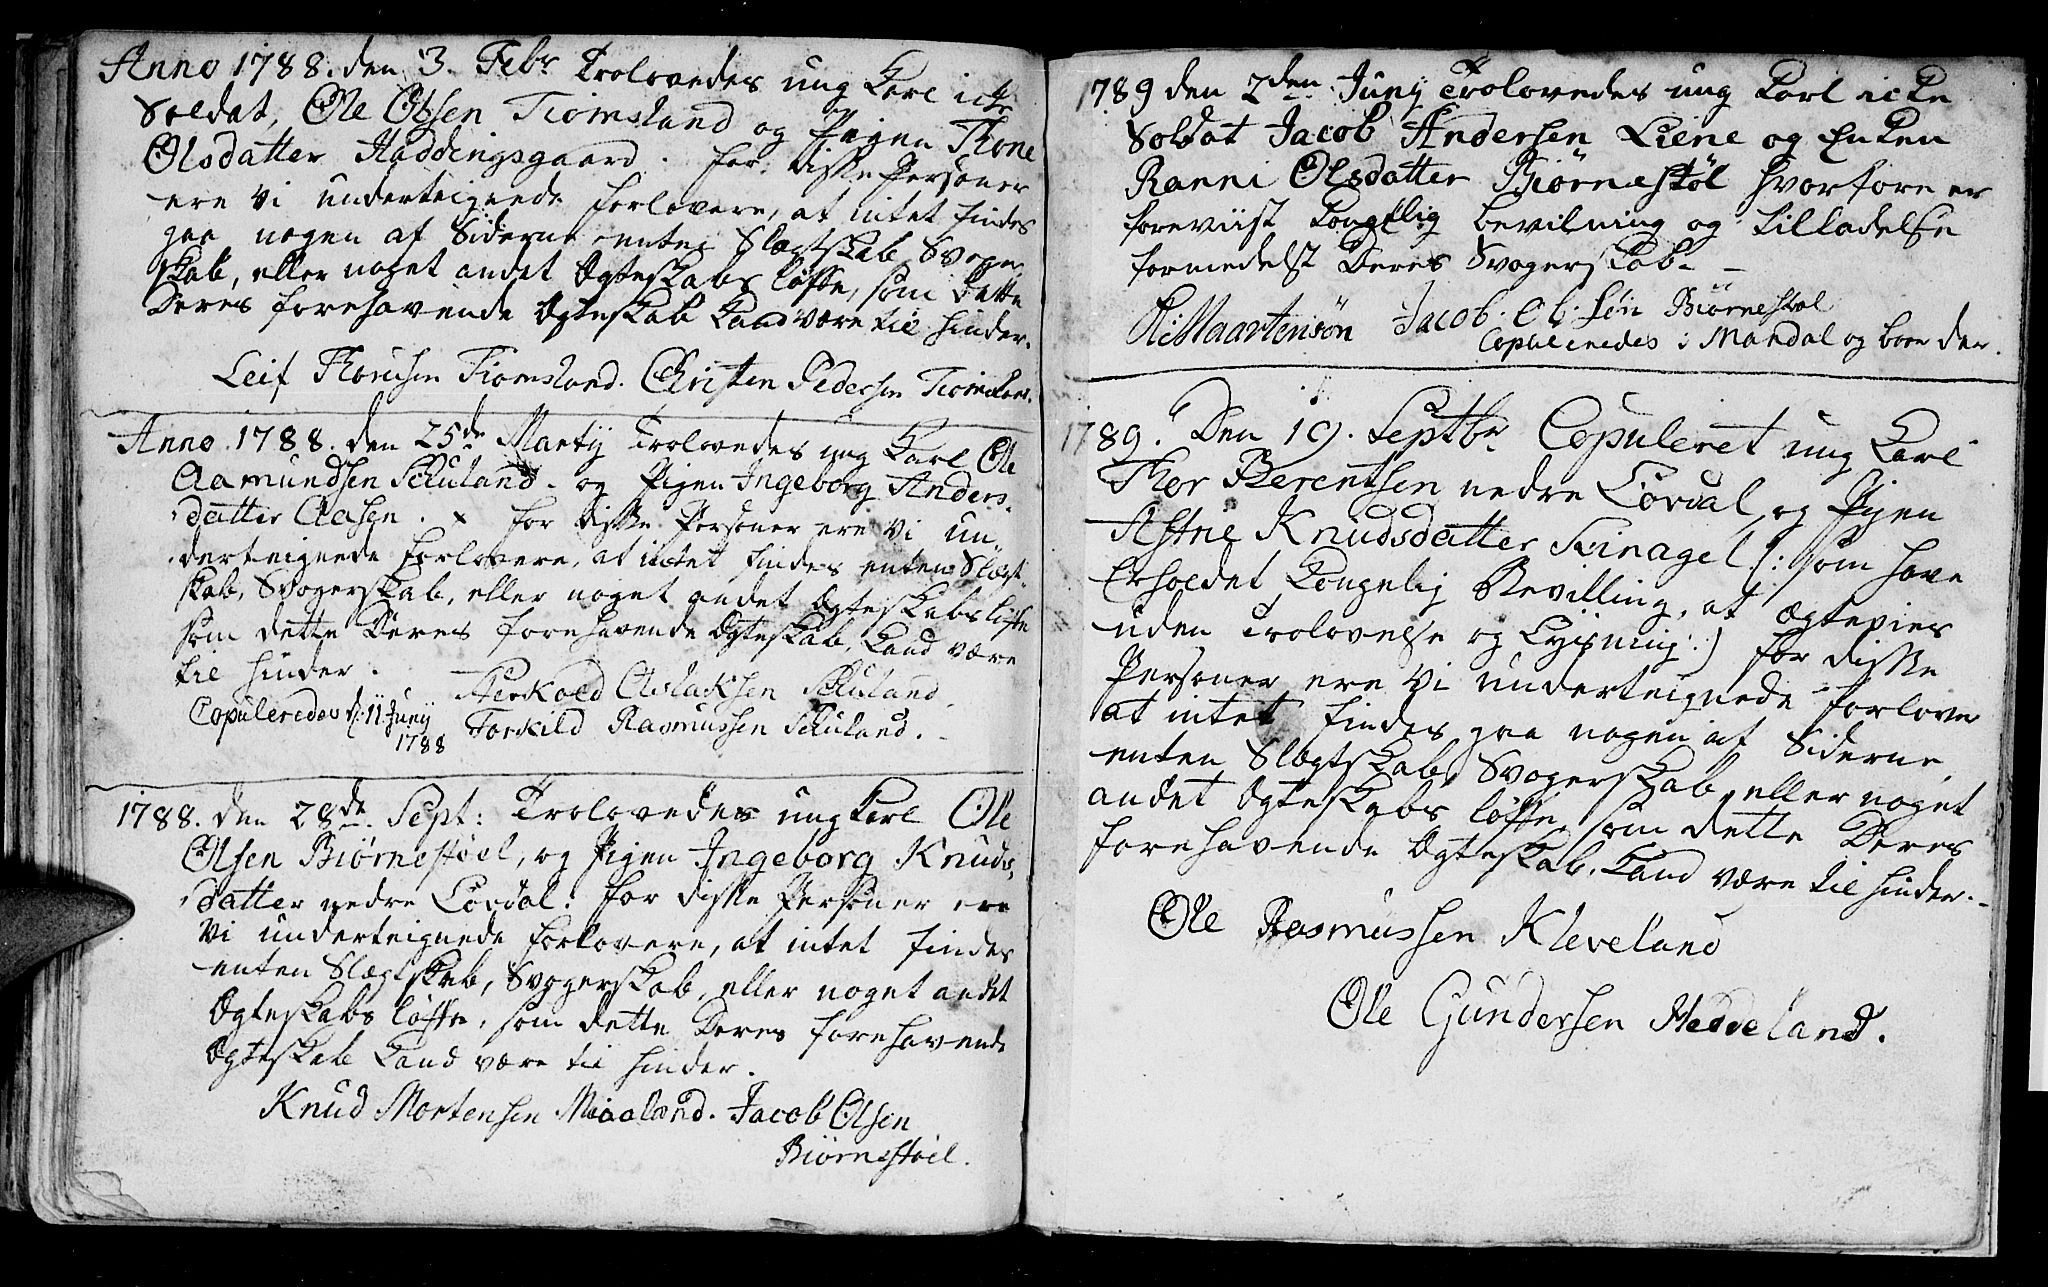 Anno 1788. den 3. Febr Trolovedes ung Karl icke
Soldat, Ole Olsen Tiomsland og Pigen Thone
Olsdatter Haddingsgaard. for disse Personer
ere Vi underteignede forlovere, at intet findes
paa nogen af Siderne enten Slægtskab, Svoger
skab, eller noget andet Ægteskabs løffte, som dette
Deres forehavende Ægteskab Kand være til hinder.
Leif Tiomsland. Christen Pedersen
Anno 1788. den 25de Martij Trolovedes ung Karl Ole
Aamundsen Skuland. og Pigen Ingeborg Anders-
datter Aasen. x for disse Personer ere Vi un
derteignede forlovere, at intet findes enten Slægt-
skab, Svogerskab, eller noget andet Ægteskabs løfte
som dette Deres forehavende Ægteskab, Kand være
til hinder.
Aslaksen Skuland
Copuleredes d: 11 Junij
1788
Torkild Rasmussen Skuland.
1788. den 28de Sept: Trolovedes ung Karl Ole
Olsen Biørnestøel, og Pigen Ingeborg Knuds-
datter nedre Løvdal. for disse Personer ere
Vi underteignede forlovere, at intet findes
enten Slægtskab, Svogerskab, eller noget andet
Ægteskabs løffte, som dette Deres forehavende
Ægteskab Kand være til hinder.
Knud Mortensen Miaaland. Jacob Olsen
Biørnestøel.
1789 den 2den Juny Trolovedes ung Karl icke
Soldat Jacob Andersen Liene og Enken
Ranni Olsdatter Biørnestøl hvorfore er
foreviist Kongelig bevilning og Tilladelse
formedelst Deres Svogerskab. -
Maartensøn Jacob Ols søn Biørnestøl
Copuleredes i Mandal og boer der.
1789. Den 19. Septbr Copuleret ung Karl
Thor Berentsen nedre Løvdal, og Pigen
Astne Knudsdatter Svinagel (: som have
Erholdet Kongelig Bevilling, at ægtevies
uden Trolovelse og Lysning:) for disse
Personer ere Vi underteignede forlover
at intet findes paa nogen af Siderne,
enten Slægtskab, Svogerskab, eller noget
andet Ægteskabs løffte, som dette Deres
forehavende Ægteskab, Kand være til hinder. -
Ole Rasmussen Kleveland
Ole Gundersen Heddeland.